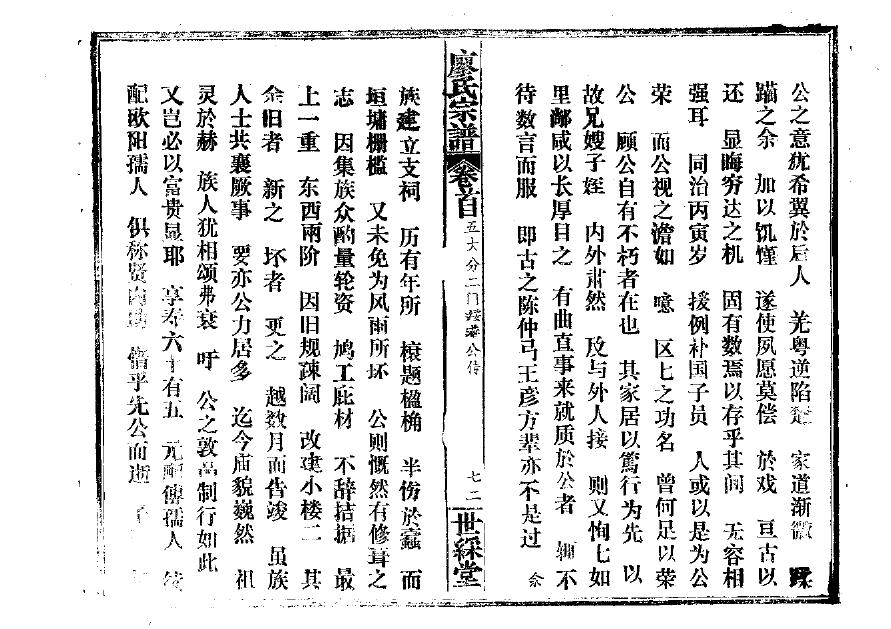 公之意犹希翼於后人 羌粤逆陷楚 家道渐微
蹋之余 加以饥馑 遂使夙愿莫偿 於戏 亘古以
还 显晦穷达之机 固有数焉以存乎其间 无容相
强耳 同治丙寅岁 援例补国子员 人或以是为公
荣 而公视之澹如 噫 区七之功名 曾何足以荣
公 顾公自有不朽者在也 其家居以笃行为先 以
故兄嫂子姪 内外肃然 及与外人接 则又恂七如
里鄰咸以长厚目之 有曲直事来就质於公者 不
待数言而服 即古之陈仲弓王彦方辈亦不是过 余
廖氏宗譜
卷首
五大分二门 公传
七二
世綵堂
族建立支祠 历有年所 榱题楹桷 半伤於蠹 而
垣墉栅槛 又未免为风雨所坏 公则慨然有修葺之
志 因集族众酌量轮资 鸠工庇材 不辞拮据 最
上一重 东西兩阶 因旧规疎阔 改建小楼二 其
余旧者 新之 坏者 更之 越数月而告竣 虽族
人士共襄厥事 要亦公力居多 迄今庙貌巍然 祖
灵於赫 族人犹相颂弗衰 吁 公之敦品制行如此
又岂必以富贵显耶 享寿六十有五 元配傅孺人
配欧阳孺人 俱称贤内助 惜乎先公而逝 子